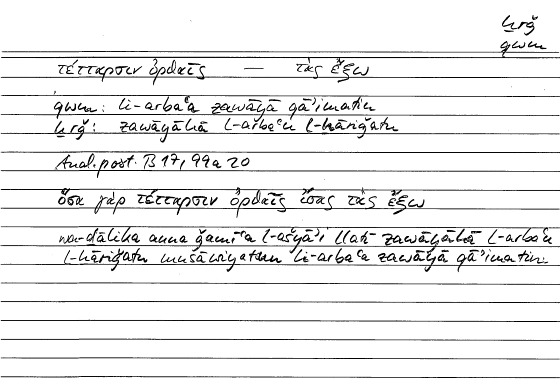 ḫrǧ
qwm
τέτταρσιν ὀρθαῖς — τὰς ἔξω
qwm: li-arbaʿa zawāyā qāʾimatin
ḫrǧ: zawāyāhā l-arbaʿu l-ḫāriǧatu
Anal. post. B 17, 99a20
ὅσα γὰρ τέτταρσιν ὀρθαῖς ἴσας τὰς ἔξω
wa-ḏālika anna ǧamīʿa l-ašyāʾi llatī zawāyāhā l-arbaʿu
l-ḫāriǧatu musāwiyatun li-arbaʿa zawāyā qāʾimatin.